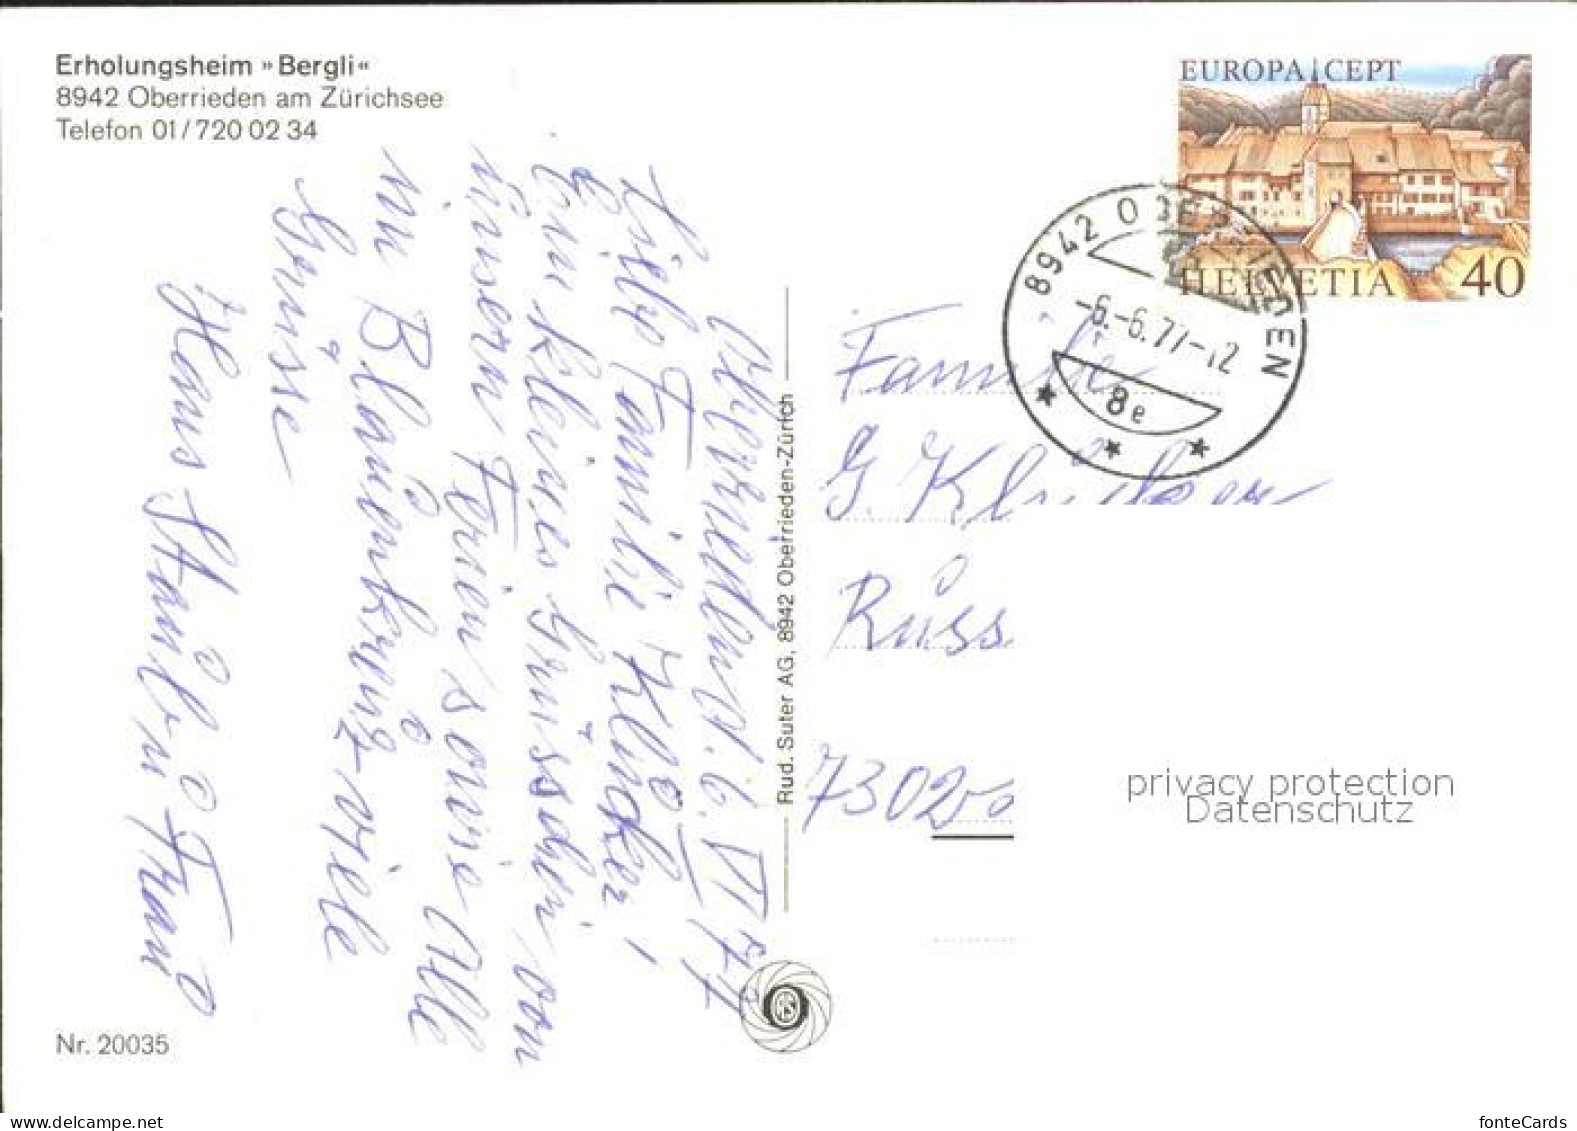 Erholungsheim »Bergli«
8942 Oberrieden am Zürichsee
Telefon 01/720 02 34
EUROPA CEPT
HELVETIA 40
8942 OBERRIEDEN
-6.-6.77-12
8e
Oberrieden d. 6. VI 77
Liebe Familie Klinker,
Ein kleines Grüsschen von
unsern Ferien sowie Alle
im Blauenkreuz viele
Grüsse
Hans Staub u Frau
Rud. Suter AG, 8942 Oberrieden-Zürich
Familie
G.
Rüss
7302
privacy protection
Datenschutz
Nr. 20035
www.delcampe.net
fonteCards